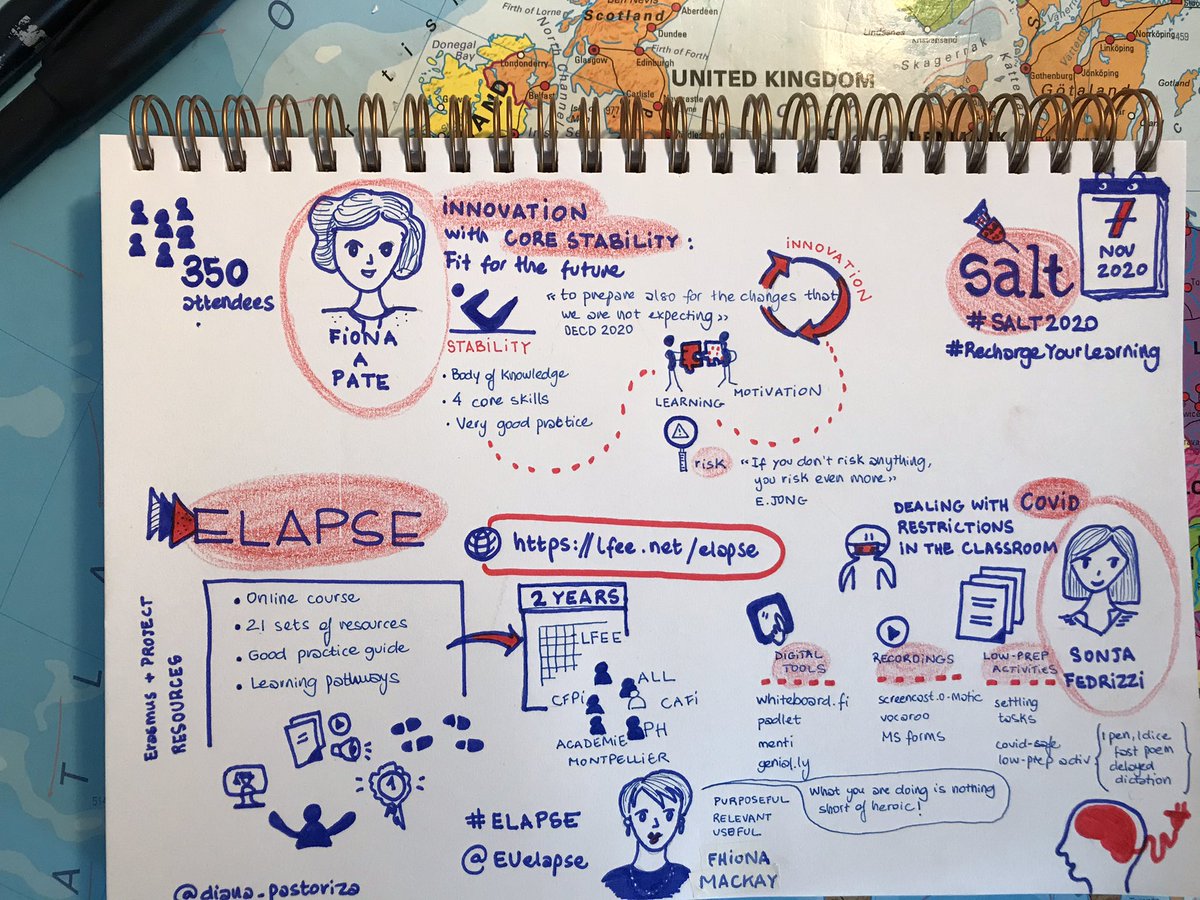 Firth of Lorne
Scotland
Aberdeen
Dundee
Firth of Forth
Glasgow
Edinburgh
Donegal
Bay
Londonderry
Belfast
Carlisle
UNITED KINGDOM
Skagerrak
Gothenburg
Jönköping
Linköping
Norrköping
Götaland
350
attendees
FiONA
A
PATE
iNNOVATiON
with CORE STABiLiTY:
Fit for the future
"to prepare also for the changes that
we are not expecting"
OECD 2020
STABiLiTY
• Body of Knowledge
• 4 core skills
• Very good practice
iNNOVATiON
LEARNiNG
MOTiVATiON
risk
"If you don't risk anything,
you risk even more"
E.JONG
salt
#SALT2020
#RechargeYourLearning
7
NOV
2020
ELAPSE
https://lfee.net/elapse
Erasmus + PROJECT
RESOURCES
• Online course
• 21 sets of resources
• Good practice guide
• Learning pathways
2 YEARS
LFEE
ALL
CFPi
CAFi
PH
ACADEMiE
MONTPELLiER
DEALiNG WiTH COViD
RESTRiCTiONS
iN THE CLASSROOM
SONJA
FEDRiZZi
DiGiTAL
TOOLS
whiteboard.fi
padlet
menti
genial.ly
RECORDiNGS
screencast.o-matic
vocaroo
MS forms
LOW-PREP
ACTiViTiES
settling
tasks
covid-safe
low-prep activ
1 pen, 1 dice
fast poem
delayed
dictation
#ELAPSE
@EUelapse
PURPOSEFUL
RELEVANT
USEFUL
What you are doing is nothing
short of heroic!
FHiONA
MACKAY
@diana_pastoriza